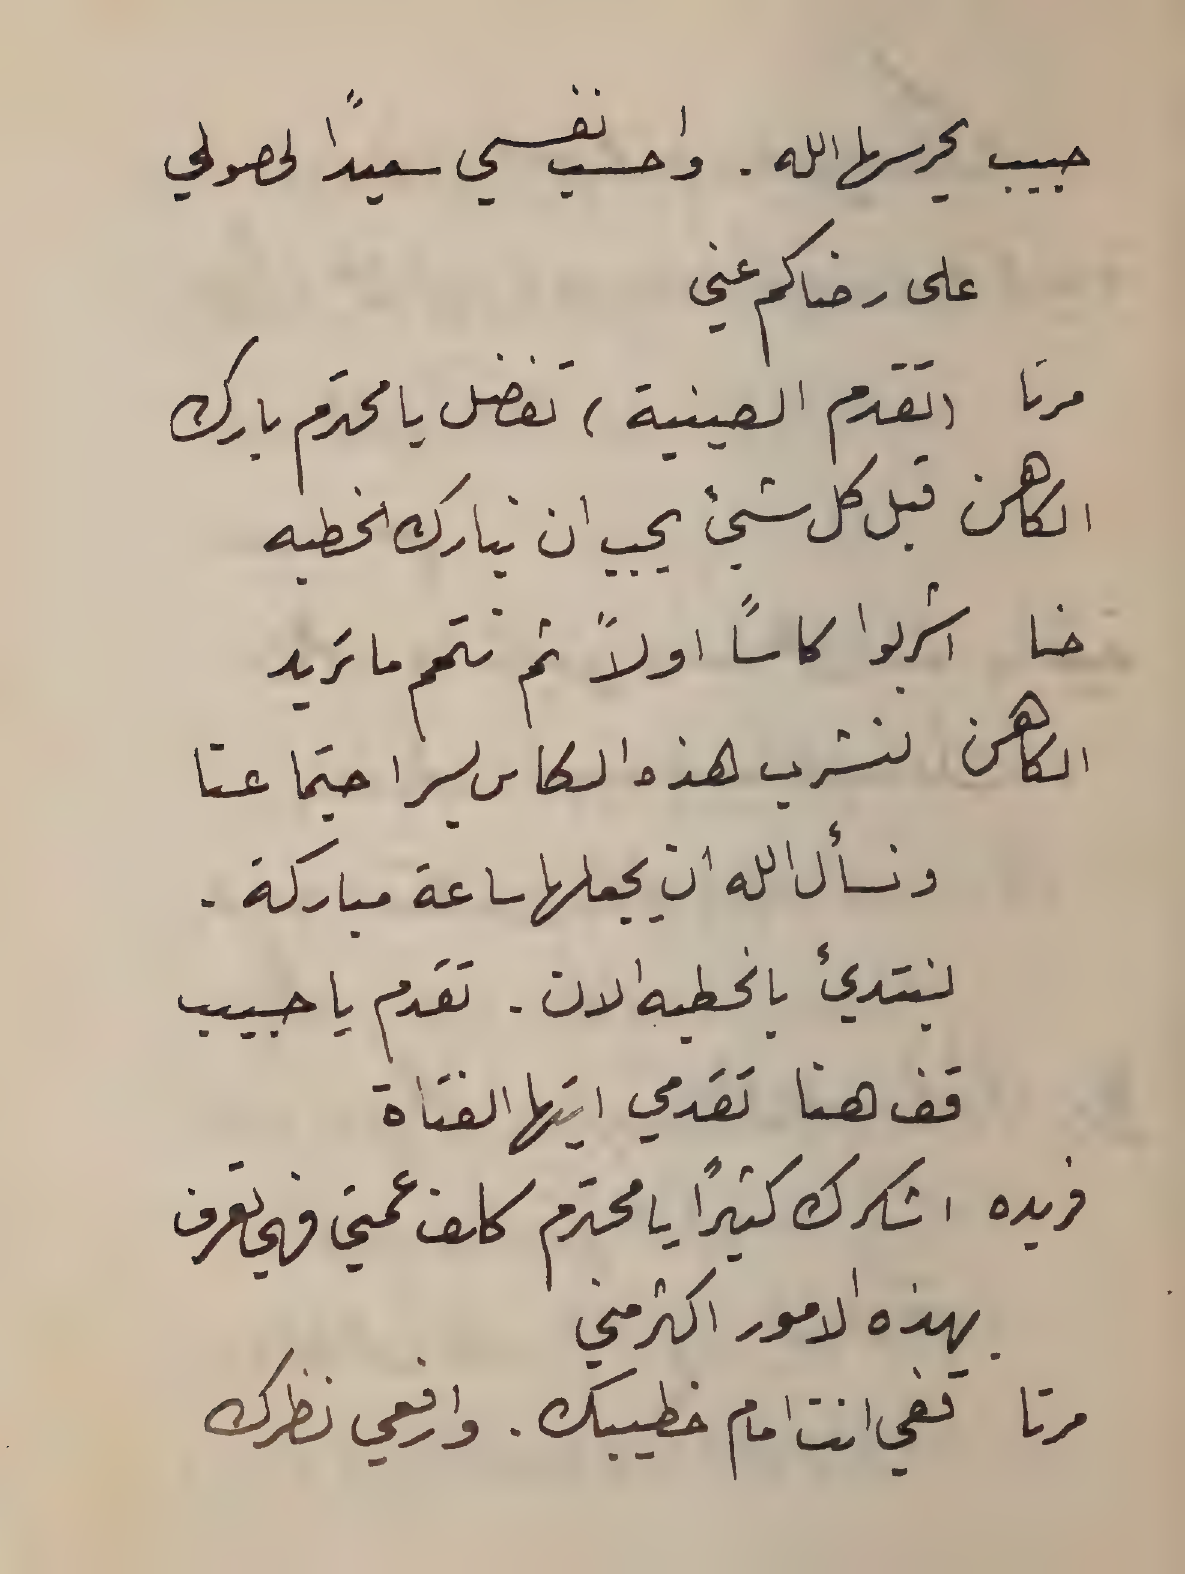 حبيب يحرسها الله . واحسب نفسي سعيدًا لحصولي
على رضاكم عني
مرتا (تقدم الصينية) تفضل يا محترم بارك
الكاهن قبل كل شيئ يجب ان نبارك الخطبه
حنا اشربوا كاسًا اولاً ثم نتمم ما تريد
الكاهن لنشرب هذه الكاس لسر اجتماعنا
ونسأل الله ان يجعلها ساعة مباركة .
لنبتدئ بالخطبه الان . تقدم يا حبيب
قف هنا تقدمي ايتها الفتاة
فريده اشكرك كثيرًا يا محترم كلف عمتي فهي تعرف
بهذه الامور اكثر مني
مرتا قفي انت امام خطيبك . وارفعي نظرك